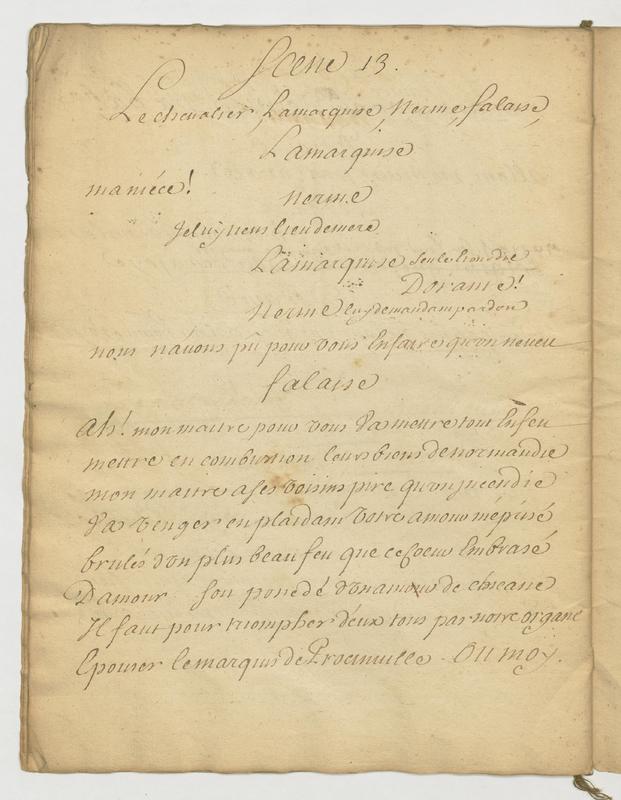 Scene 13.
Le chevalier, Lamarquise, Nerine, falaise,
Lamarquise
maniéce!
Nerine
Je luy tiens lieu de mere
Lamarquise seule
Dorante!
Nerine luy demandant pardon
nous n'avons pû pour vous Enfaire qu'un neveu
falaise
Ah! mon maitre pour vous va mettre tout Enfeu
mettre en combustion leurs biens de normandie
mon maitre a ses voisins pire qu'un jncendie
va venger en plaidant votre amour méprisé
brulés d'un plus beau feu que ce Coeur Embrasé
D'amour soit possedé d'un amour de chicane
Il faut pour triompher d'eux tous par notre organe
Epouser le marquis de Procinville ou moy.